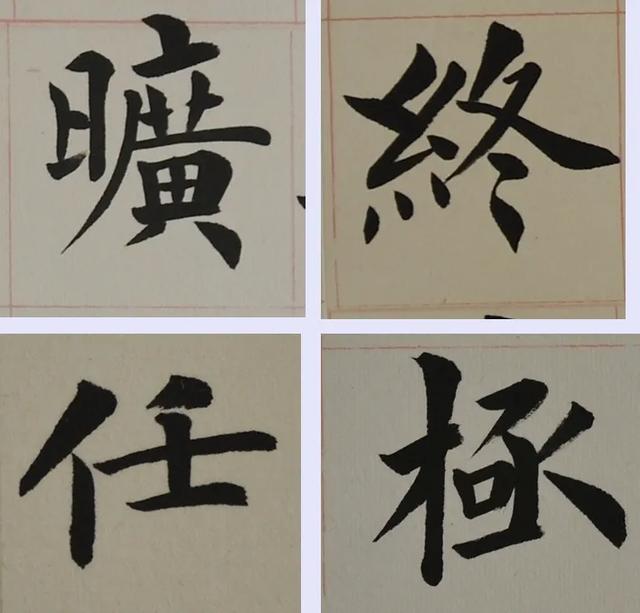 曠終
任極